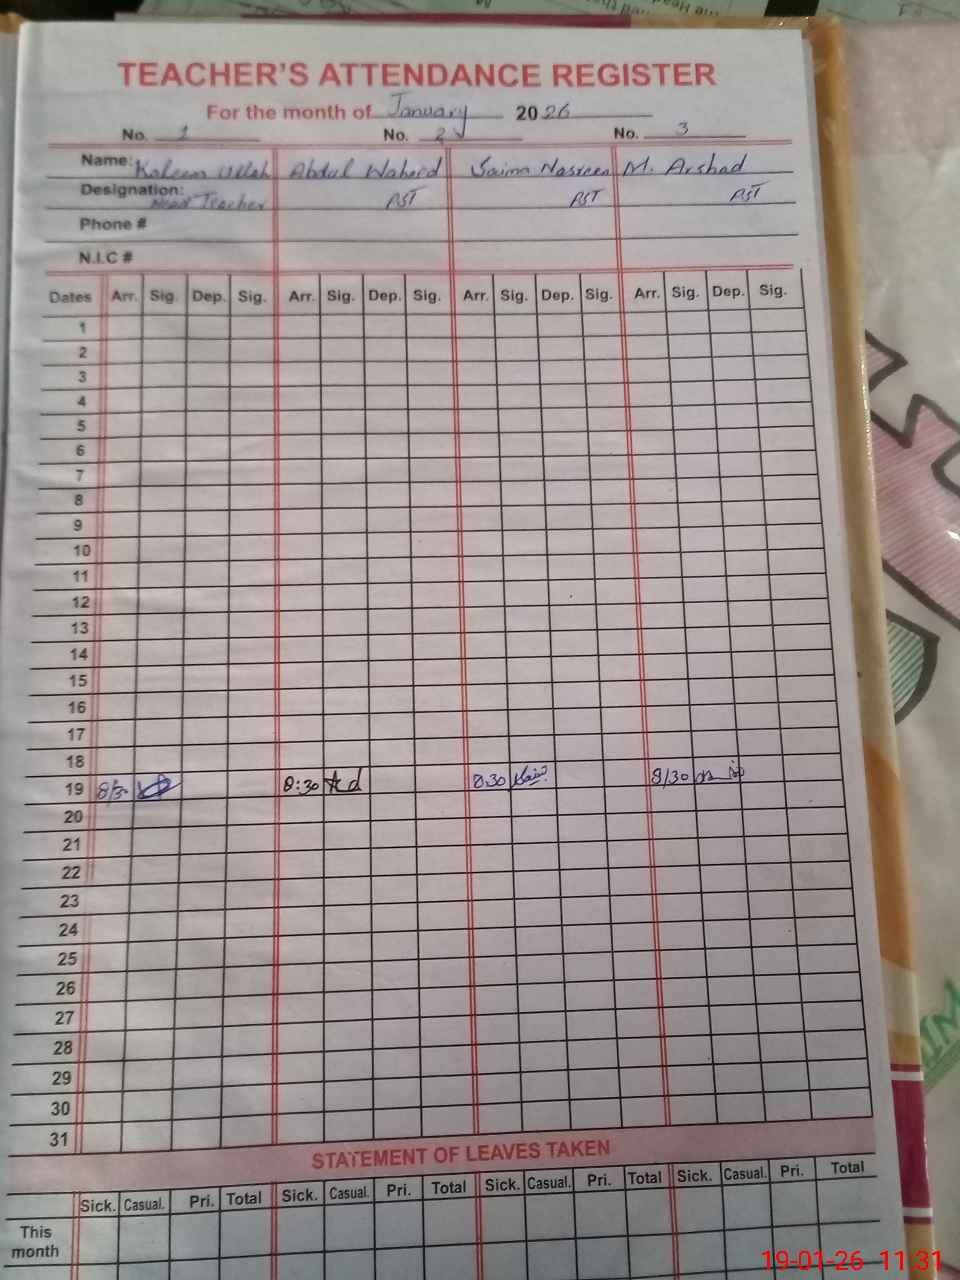 TEACHER'S ATTENDANCE REGISTER
For the month of January 2026
No. 1 No. 2 No. 3
Name: Kaleem Ullah Abdul Waheed Saima Nasreen M. Arshad
Designation: Head Teacher PST PST PST
Phone #
N.I.C #
Dates Arr. Sig. Dep. Sig. Arr. Sig. Dep. Sig. Arr. Sig. Dep. Sig. Arr. Sig. Dep. Sig.
1
2
3
4
5
6
7
8
9
10
11
12
13
14
15
16
17
18
19 8/30 8:30 8:30 8/30
20
21
22
23
24
25
26
27
28
29
30
31
STATEMENT OF LEAVES TAKEN
Sick. Casual. Pri. Total Sick. Casual. Pri. Total Sick. Casual. Pri. Total Sick. Casual. Pri. Total
This
month
19-01-26 11:31